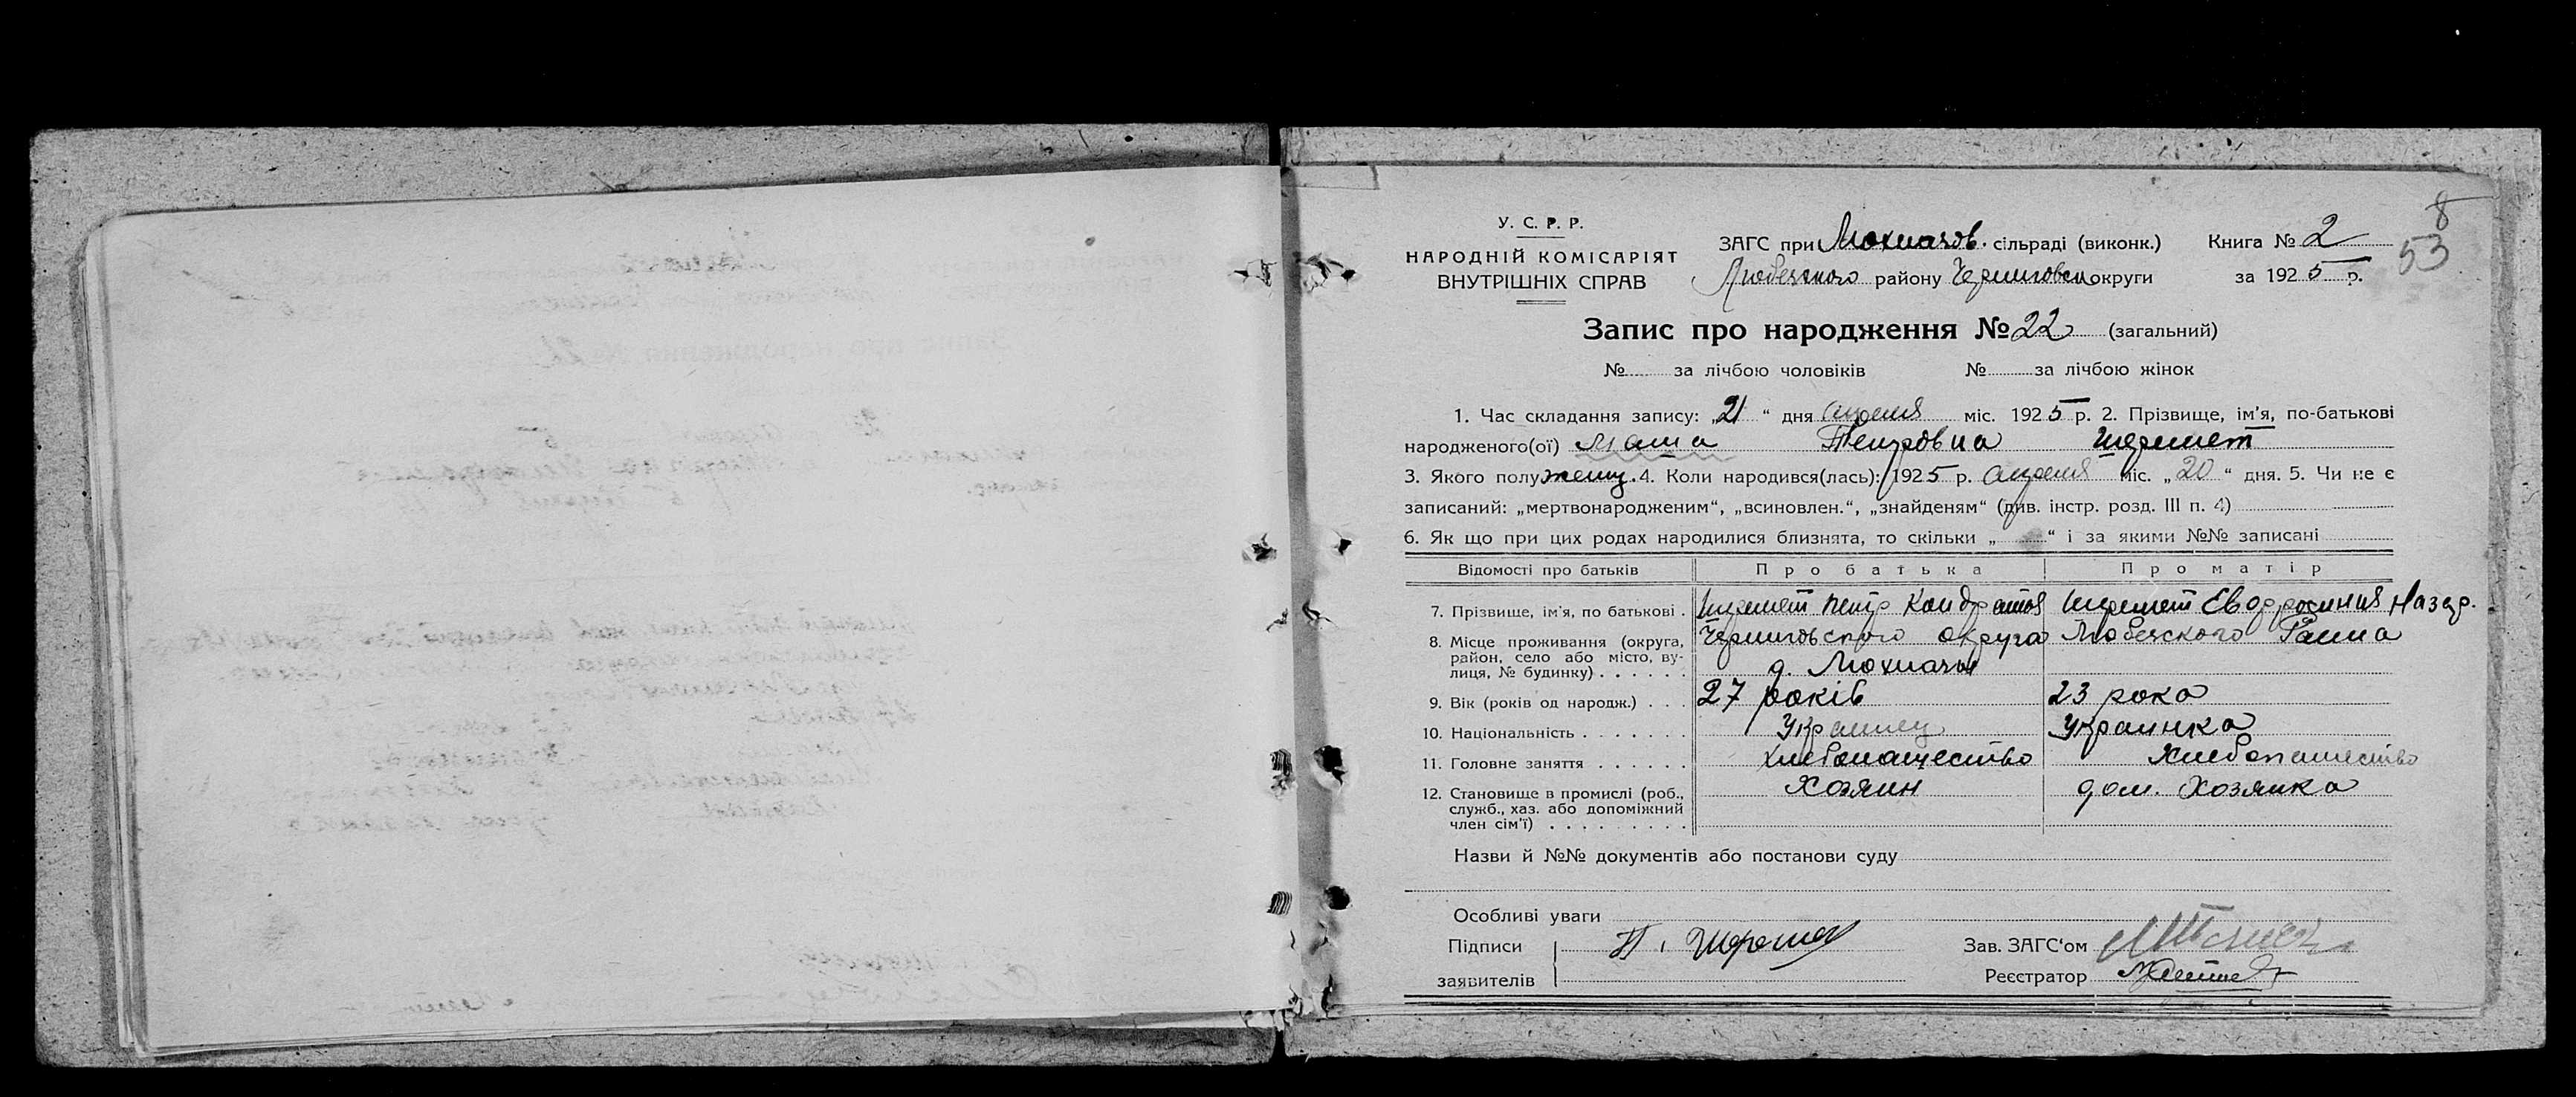 8
53
У. С. Р. Р.
НАРОДНІЙ КОМІСАРІЯТ
ВНУТРІШНІХ СПРАВ
ЗАГС при Мохначов. сільраді (виконк.) Книга № 2
Любечского району Черниговск округи за 1925 р.
Запис про народження № 22 (загальний)
№ за лічбою чоловіків № за лічбою жінок
1. Час складання запису: „21“ дня апреля міс. 1925 р. 2. Прізвище, ім'я, по-батькові
народженого(ої) Маша Петровна Шеремет
3. Якого полу женщ. 4. Коли народився(лась): 1925 р. апреля міс. „20“ дня. 5. Чи не є
записаний: „мертвонародженим“, „всиновлен.“, „знайденям“ (див. інстр. розд. III п. 4)
6. Як що при цих родах народилися близнята, то скільки „ “ і за якими №№ записані
Відомості про батьків Про батька Про матір
7. Прізвище, ім'я, по батькові . Шеремет Петр Кондратов Шеремет Назар.
8. Місце проживання (округа, Черниговского округа Любечского Раина
район, село або місто, ву-
лиця, № будинку) . . . . . . д. Мохначи
9. Вік (років од народж.) . . . 27 років 23 рока
10. Національність . . . . . . . Украинец Украинка
11. Головне заняття . . . . . . хлебопашество Хлебопашество
12. Становище в промислі (роб., Хозяин дом. Хозяика
служб., хаз. або допоміжний
член сім'ї) . . . . . . . . .
Назви й №№ документів або постанови суду
Особливі уваги
Підписи П. Шеремет Зав. ЗАГС'ом
заявителів Реєстратор